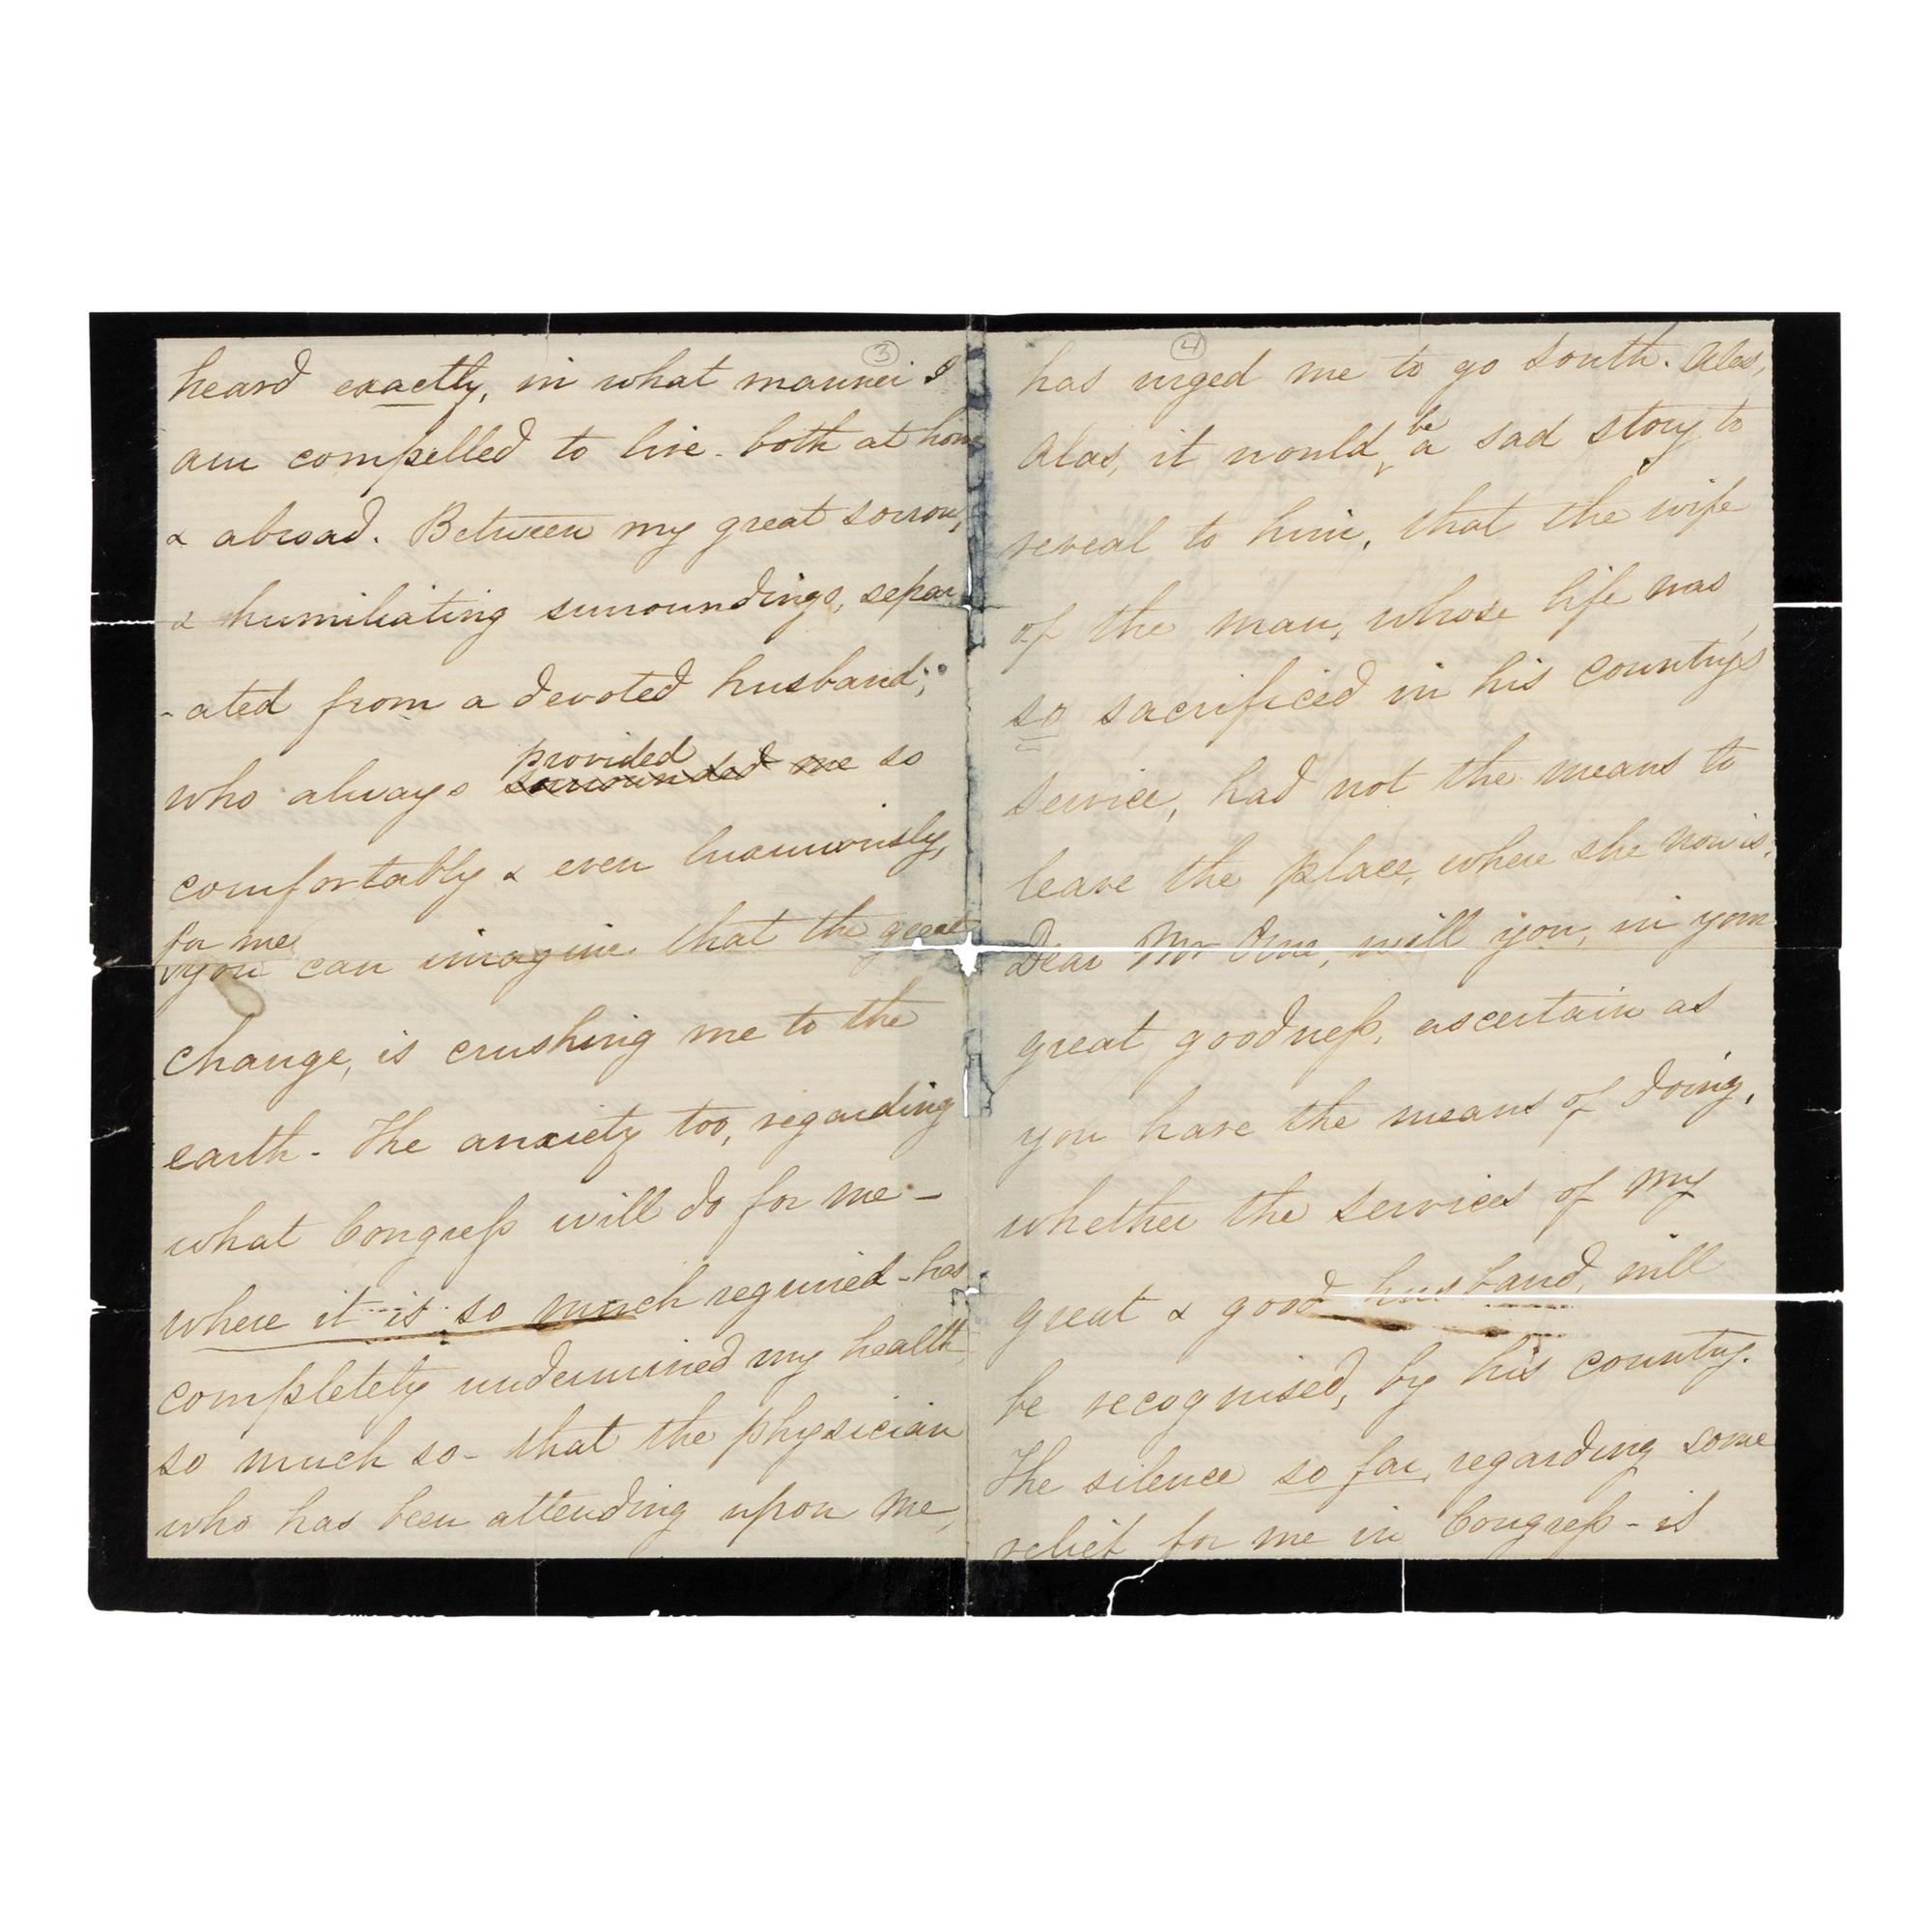 3
heard exactly, in what manner I
am compelled to live - both at home
& abroad. Between my great sorrow,
& humiliating surroundings, separ
-ated from a devoted husband,
provided
who always surrounded me so
comfortably & even luxuriously,
for me
you can imagine that the great
change, is crushing me to the
earth - The anxiety too, regarding
what Congress will do for me -
where it is so much required - has
completely undermined my health,
so much so - that the physician
who has been attending upon me,
4
has urged me to go South. Alas,
be
Alas, it would a sad story to
reveal to him, that the wife
of the man, whose life was
so sacrificed in his country's
service, had not the means to
leave the place, where she now is.
Dear Mr Orne, will you, in your
great goodness, ascertain as
you have the means of doing,
whether the services of my
great & good husband, will
be recognised, by his country.
The silence so far, regarding some
relief for me in Congress - is